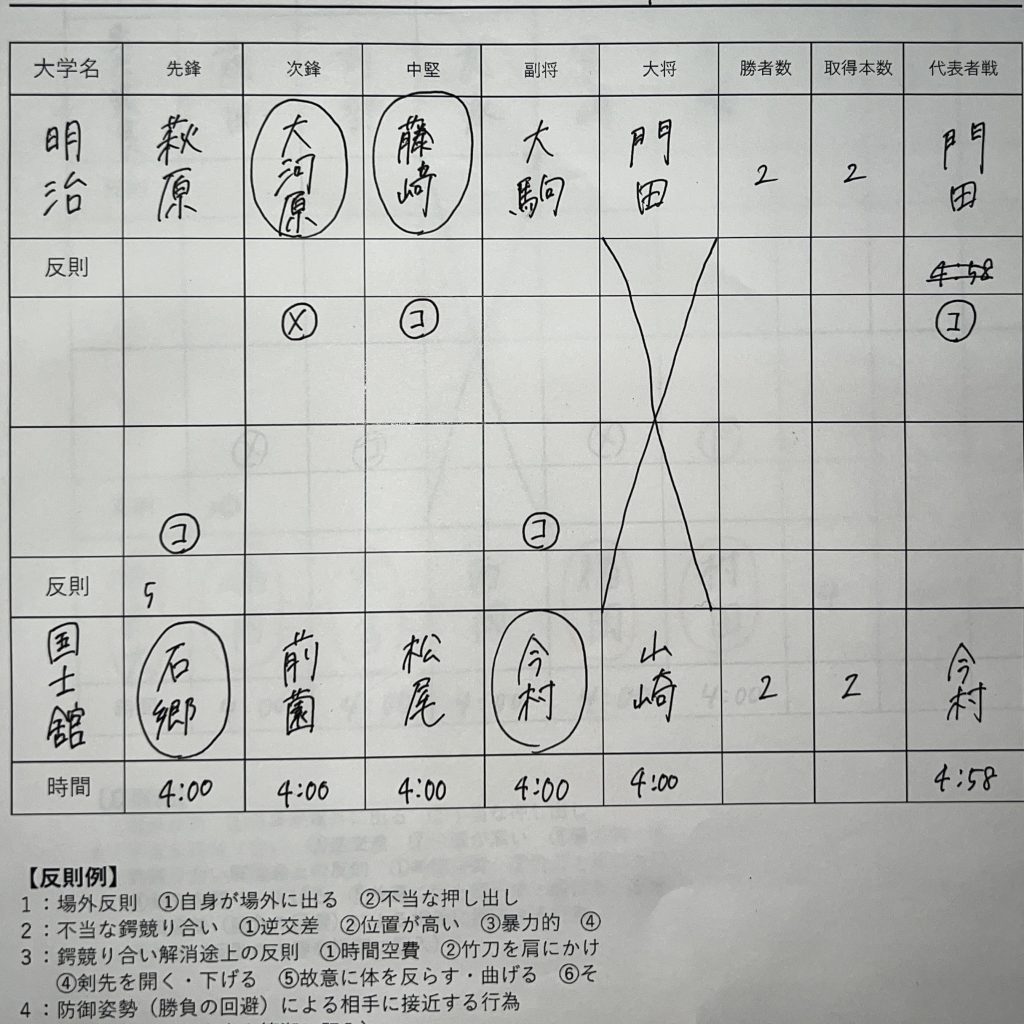 大学名 先鋒 次鋒 中堅 副将 大将 勝者数 取得本数 代表者戦
明治 萩原 大河原 藤崎 大駒 門田 2 2 門田
反則 4:58
メ コ コ
コ コ
反則 5
国士舘 石郷 前薗 松尾 今村 山崎 2 2 今村
時間 4:00 4:00 4:00 4:00 4:00 4:58
【反則例】
1:場外反則 ①自身が場外に出る ②不当な押し出し
2:不当な鍔競り合い ①逆交差 ②位置が高い ③暴力的 ④
3:鍔競り合い解消途上の反則 ①時間空費 ②竹刀を肩にかけ
④剣先を開く・下げる ⑤故意に体を反らす・曲げる ⑥そ
4:防御姿勢（勝負の回避）による相手に接近する行為